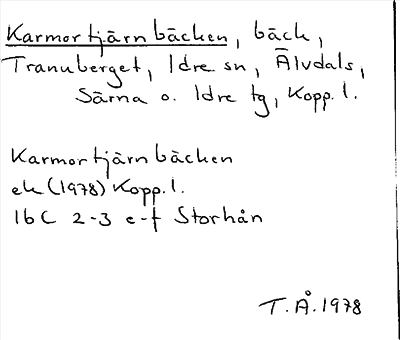 Karmortjärnbäcken, bäck,
Tranuberget, Idre sn, Älvdals,
Särna o. Idre tg, Kopp. l.
Karmortjärnbäcken
ek (1978) Kopp. l.
16C 2-3 e-f Storhån
T.Å. 1978